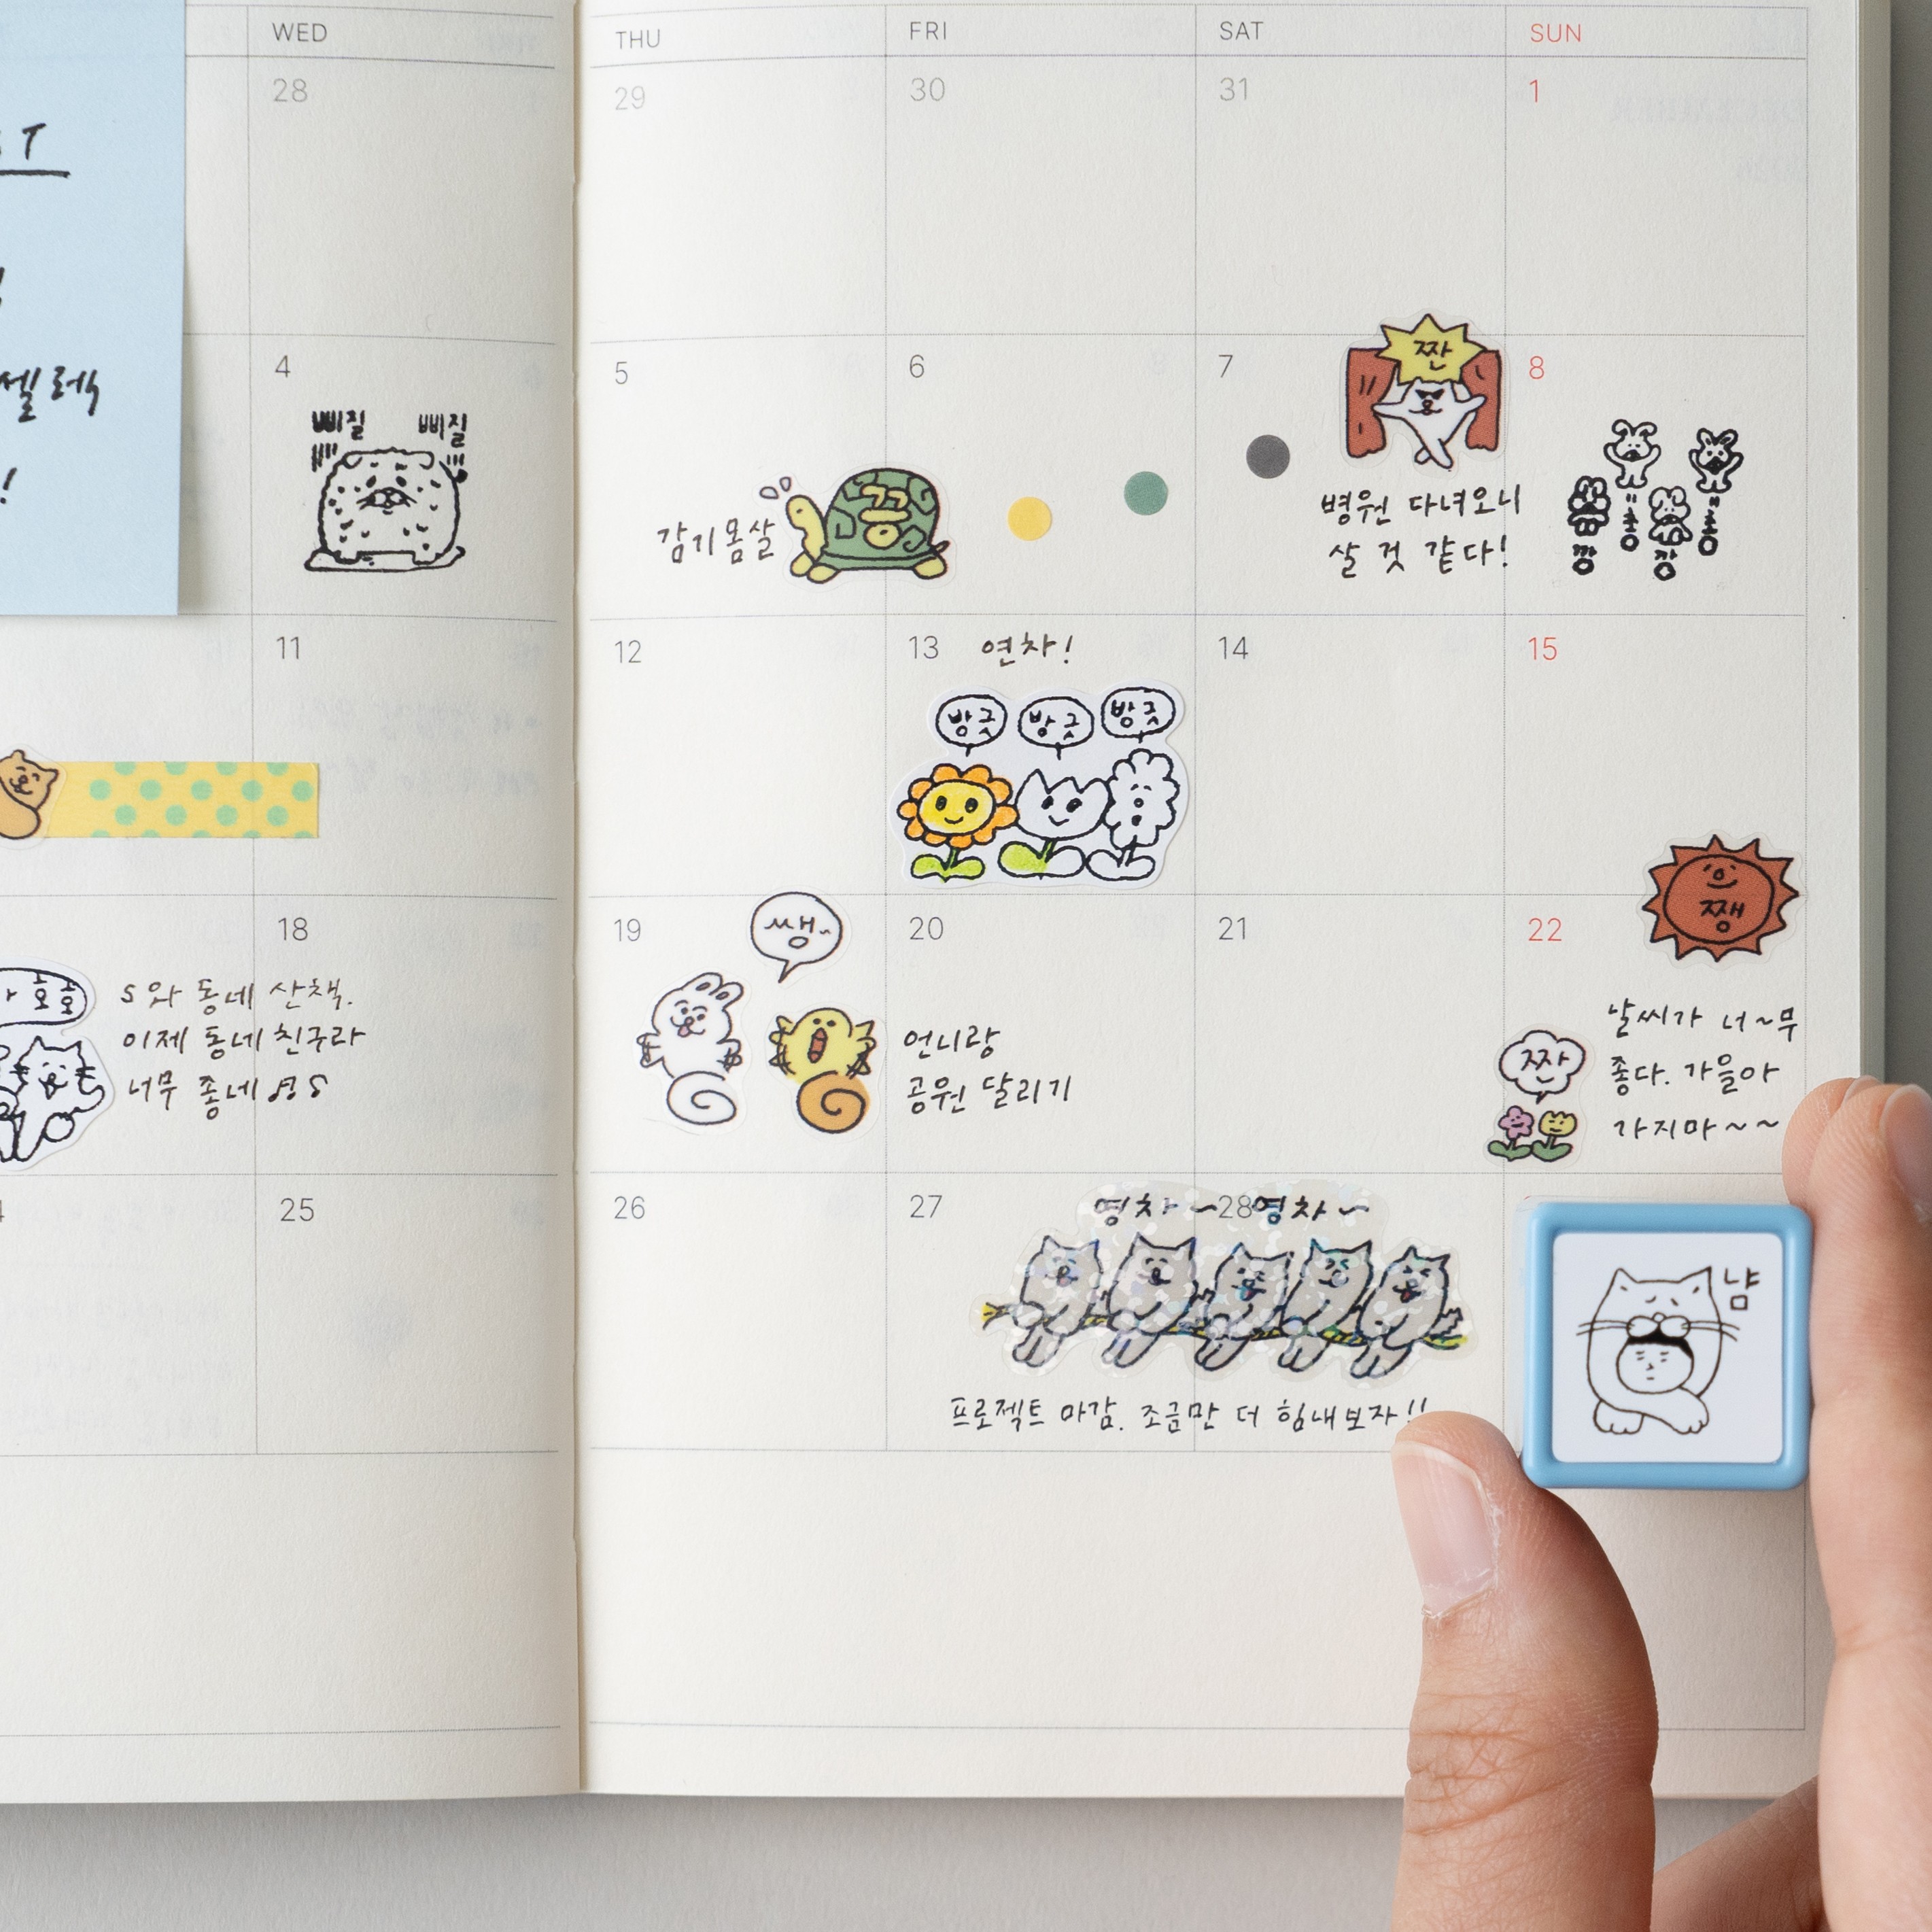 WED
THU
FRI
SAT
SUN
28
29
30
31
1
T
셀렉
!
4
삐질 삐질
5
감기몸살
꽁
6
7
짠
병원 다녀오니
살 것 같다!
8
총 총
깡 깡
11
12
13
연차!
방긋 방긋 방긋
14
15
18
호호
S와 동네 산책.
이제 동네 친구라
너무 좋네
19
쌩~
20
언니랑
공원 달리기
21
22
쨍
짠
날씨가 너~무
좋다. 가을아
가지마~~
25
26
27
28
영차~ 영차~
프로젝트 마감. 조금만 더 힘내보자!!
냠